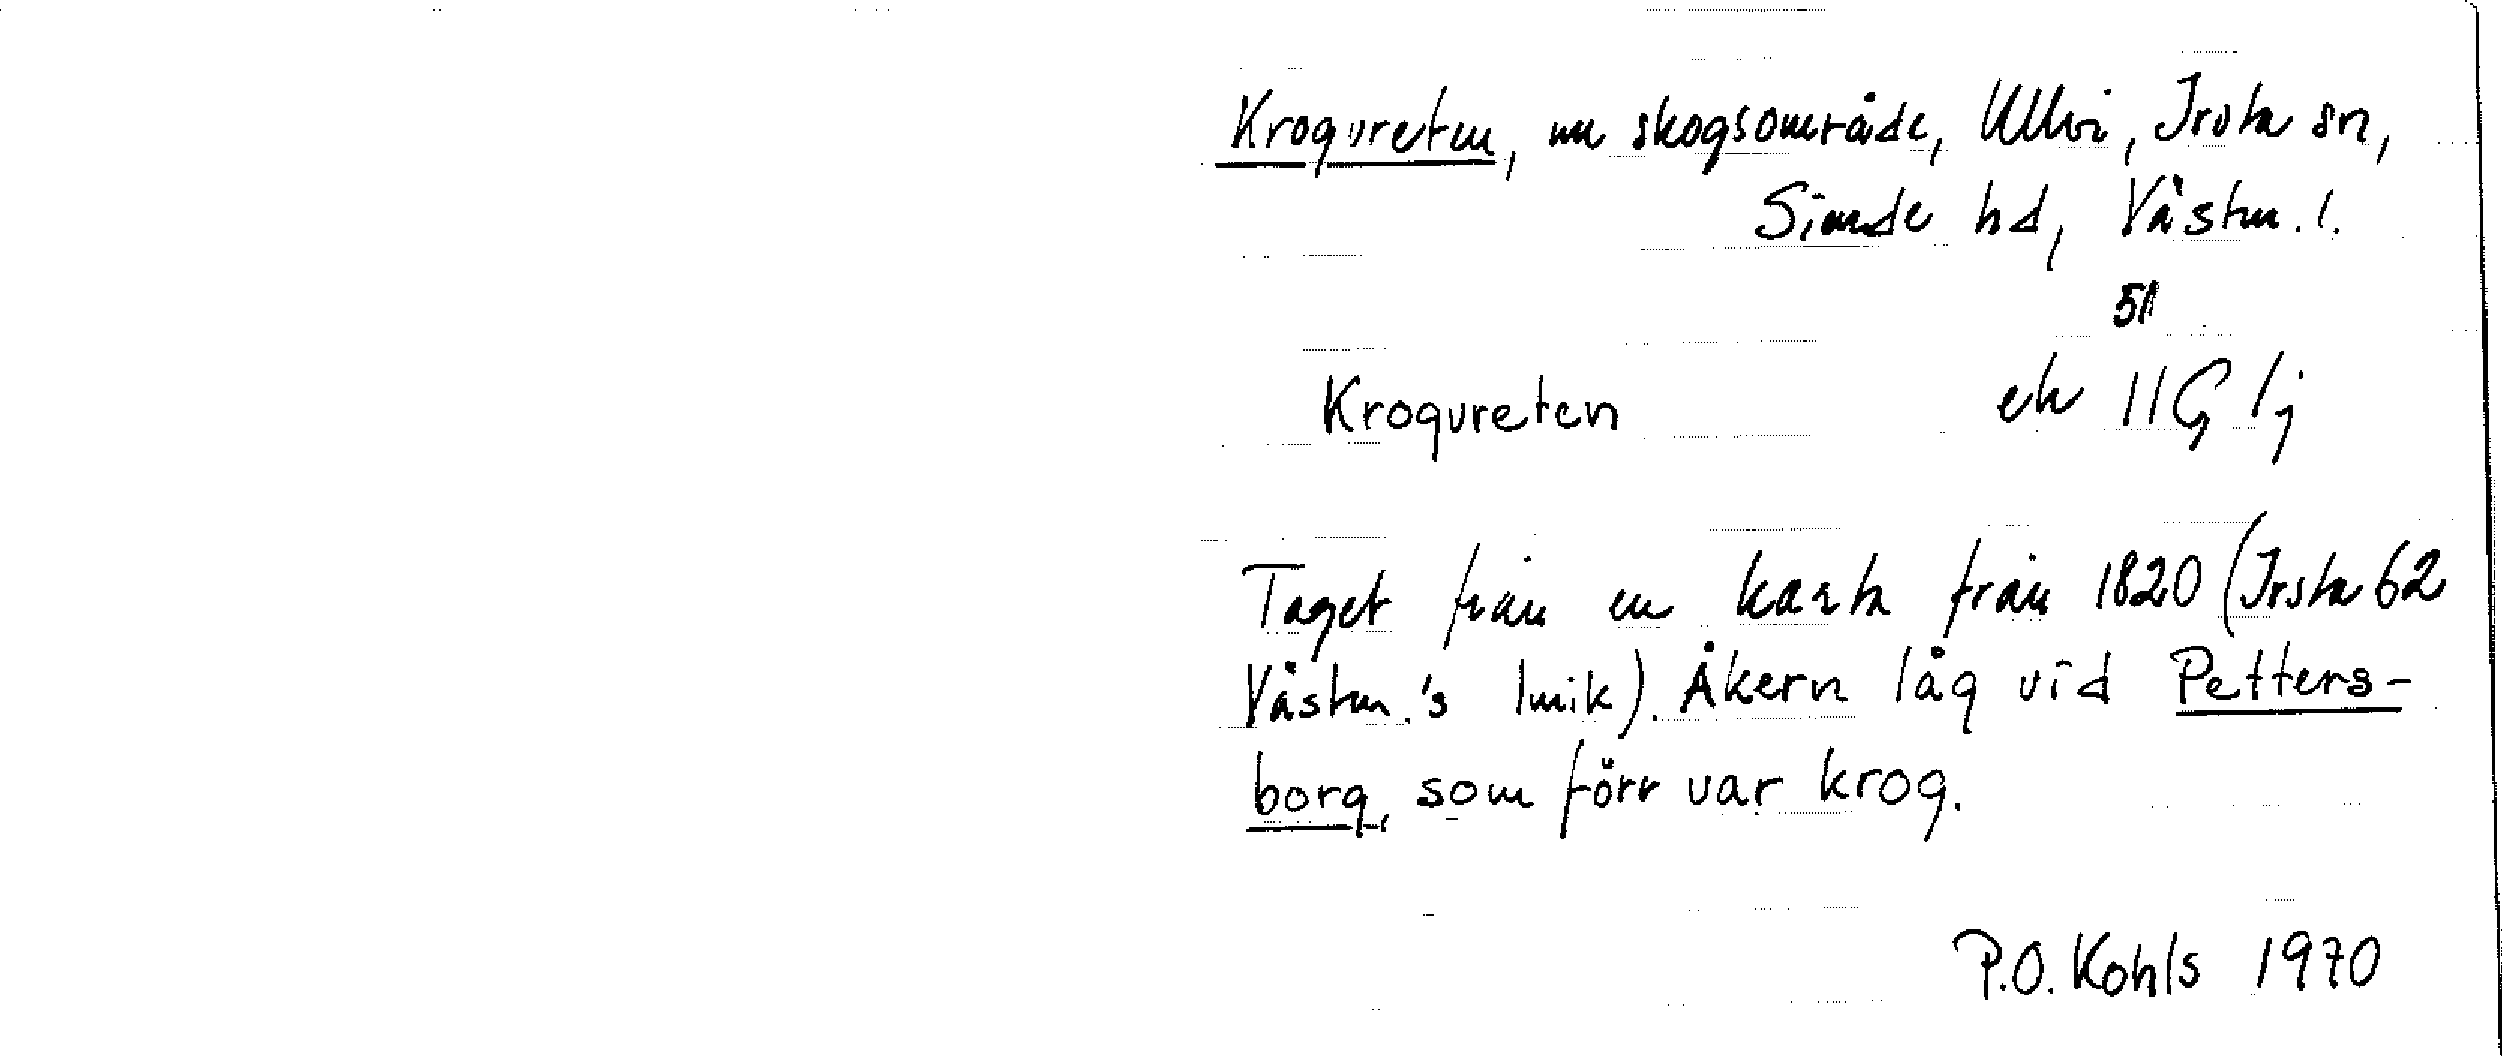 Krogvreten, nu skogsområde, Ullvi, Irsta sn,
Siende hd, Västm. l.
51
Krogvreten ek 11G 1j
Taget från en karta från 1820 (Irsta 62
Västm.'s lmik). Åkern låg vid Petters-
borg, som förr var krog.
P.O. Kohls 1970